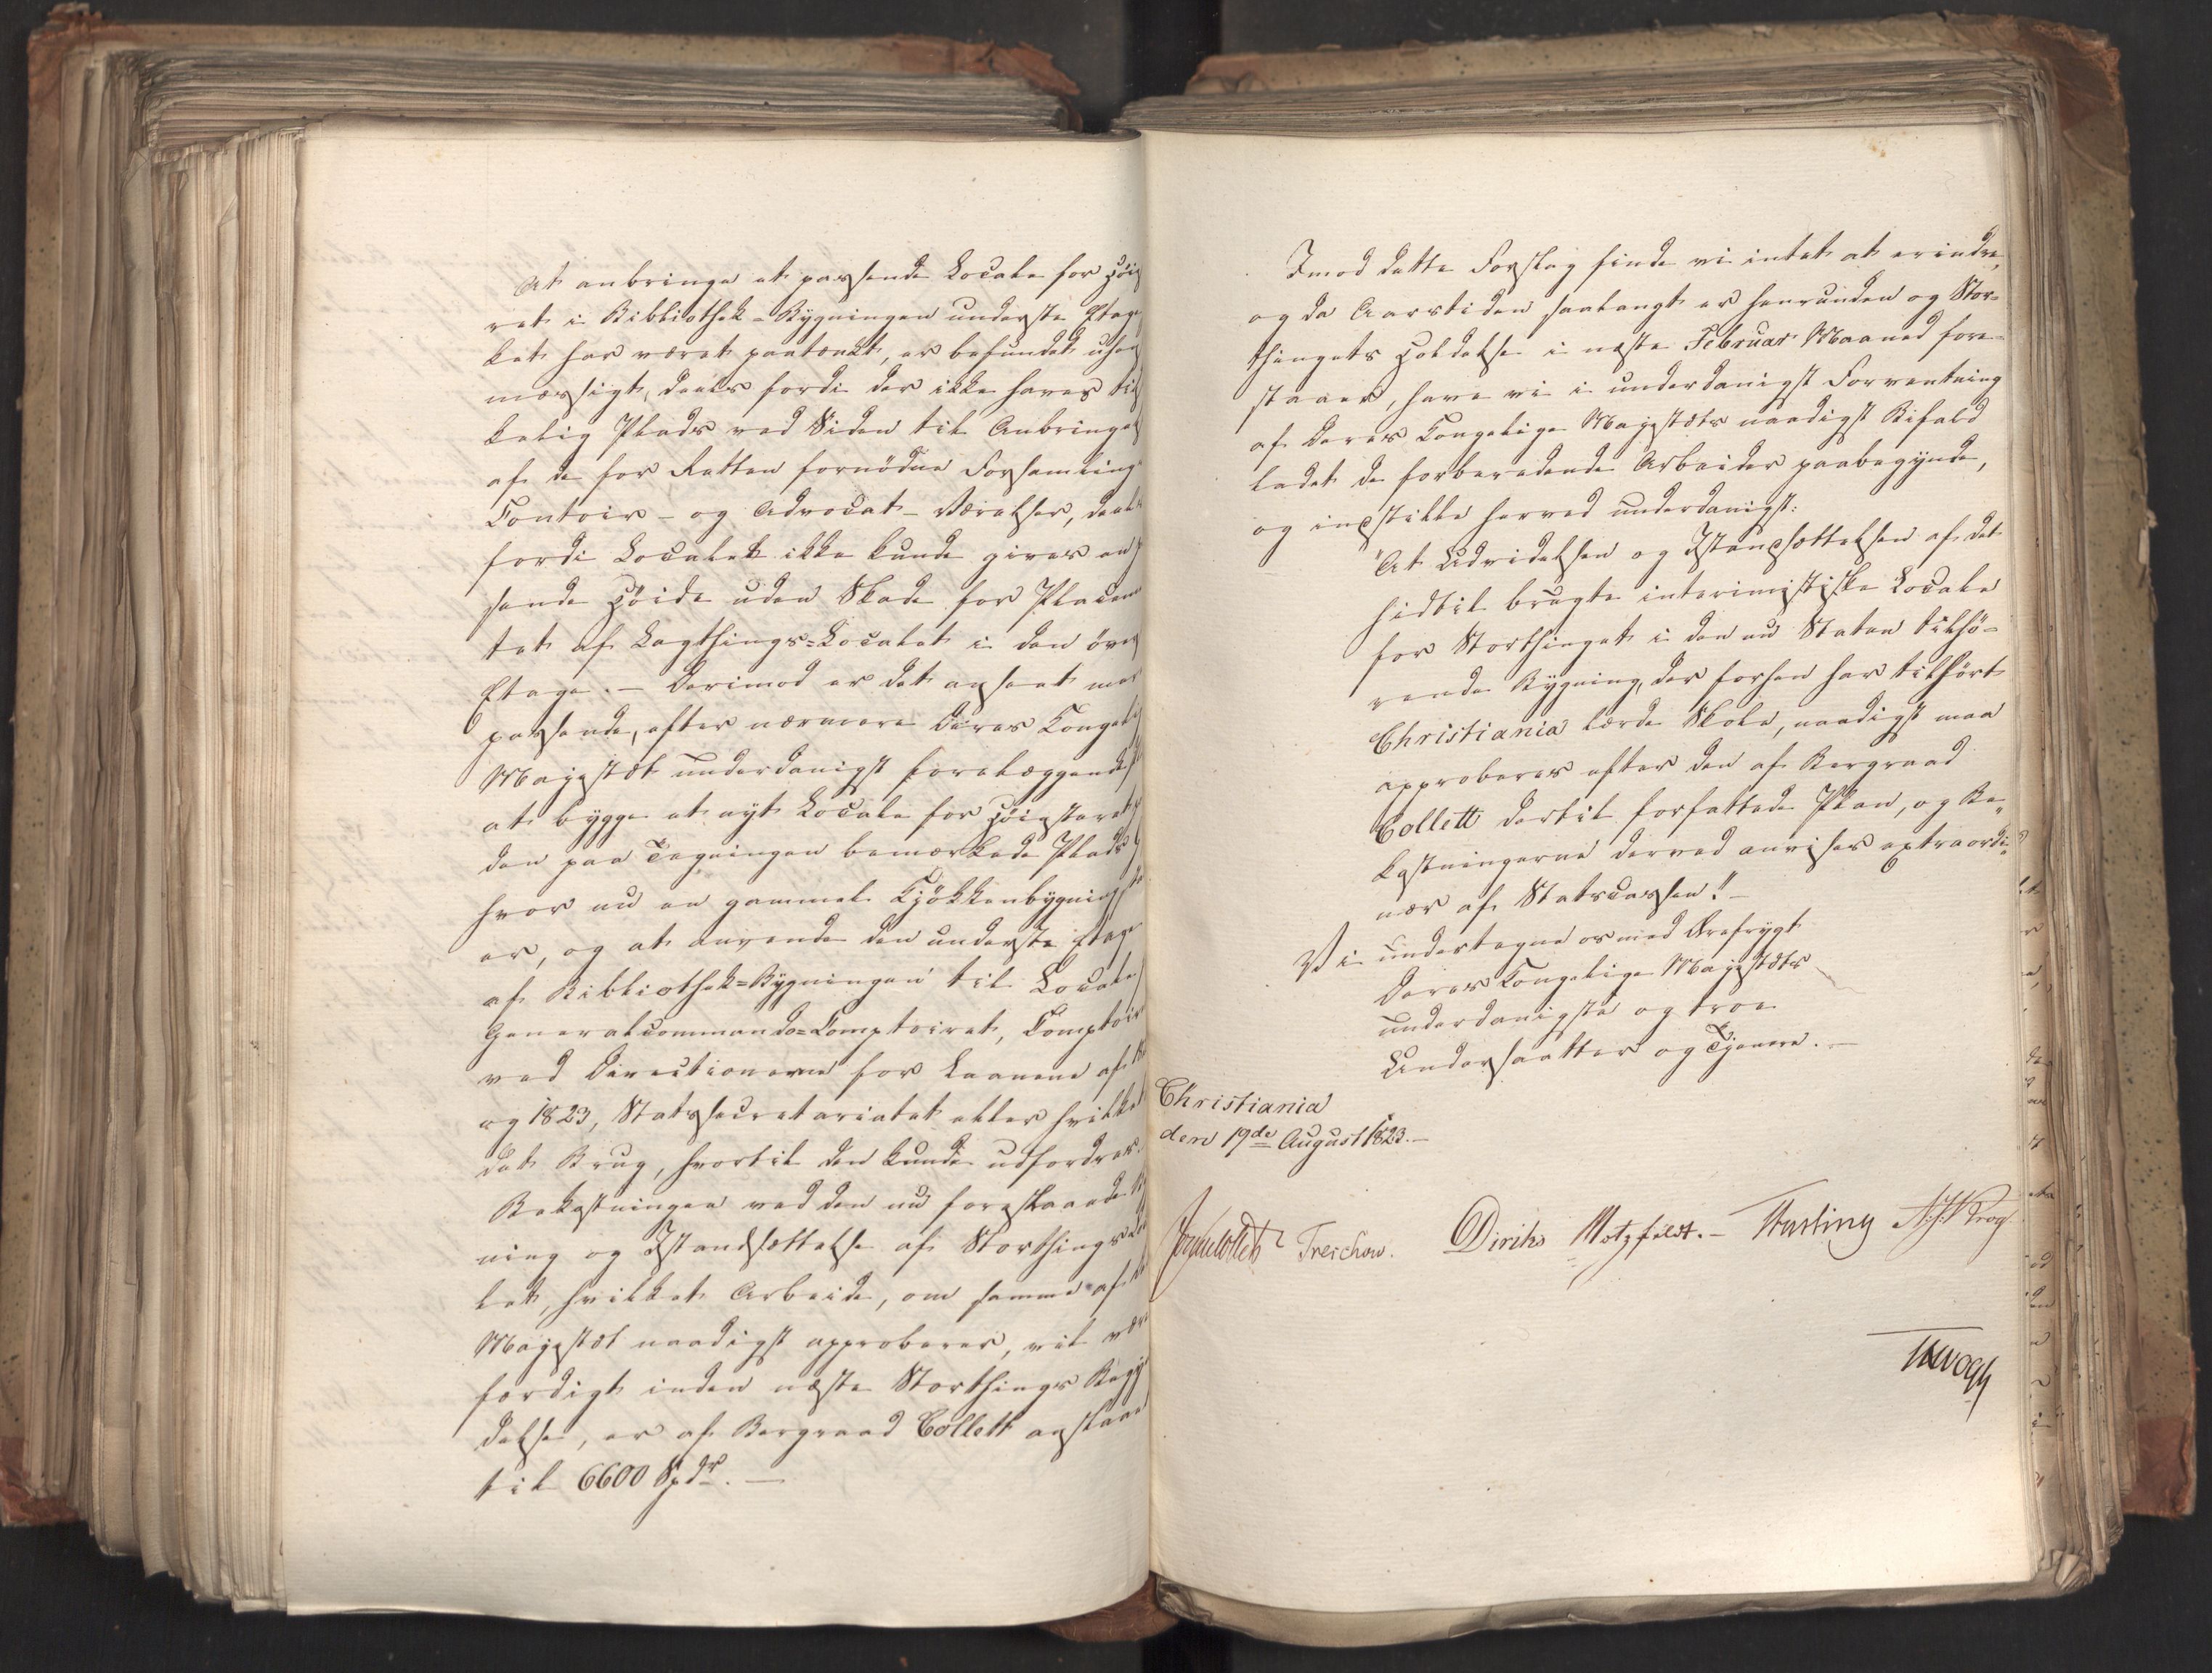 At anbringe et passende Locale for Høieste-
ret i Bibliothek-Bygningen underste Etage
ket har været paatænkt, er befundet uhen
mæssigt, deels fordi der ikke haves til
kelig Plads ved Siden til Anbringel
af de for Retten fornödne Forsamlings
Contoir- og Advocat-Værelser, deels
fordi Localet ikke kunde gives en
sende Höide uden Skade for Placeme
tet af Lagthings-Localet i den överste
Etage. — Derimod er det anseet mere
passende, efter nærmere Deres Kongelig
Majestæt underdanigst forelæggende
at bygge et nyt Locale for Höiesteret
den paa Tegningen bemærkede Plads
hvor nu en gammel Kjökkenbygning
er, og at anvende den underste Etage
af Bibliothek-Bygningen til Locale
Generalcommando-Comptoiret, Comptoir
ved Directionerne for Laanene af
og 1823, Statssecretariatet eller hvilket
det Brug, hvortil den kunde udfordres.
Bekostningen ved den nu forestaaende
ning og Istandsættelse af Storthings
let, hvilket Arbeide, om samme af
Majestæt naadigst approberes, vil være
færdigt inden næste Storthings Begyn
delse, er af Bergraad Collett anslaaet
til 6600 Spdr. —
Imod dette Forslag finde vi intet at erindre,
og da Aarstiden saalangt er henrunden og Stor-
thingets Holdelse i næste Februar Maaned fore-
staaer, have vi i underdanigst Forventning
af Deres Kongelige Majestæts naadigst Bifald
ladet de forberedende Arbeider paabegynde,
og indstille herved underdanigst:
"At Udvidelsen og Istandsættelsen af det
hidtil brugte interimistiske Locale
for Storthinget i den nu Staten tilhö-
rende Bygning, der forhen har tilhört
Christiania lærde Skole, naadigst maa
approberes efter den af Bergraad
Collett dertil forfattede Plan, og Be-
kostningerne derved anvises extraordi-
nær af Statscassen." —
Vi undertegne os med Ærefrygt
Deres Kongelige Majestæts
underdanigste og troe
Undersaatter og Tjenere. —
Christiania
den 19de August 1823. —
Jonas Collett Treschow. Diriks Motzfeldt. — Fasting N. J. Krog
T. Kvogh